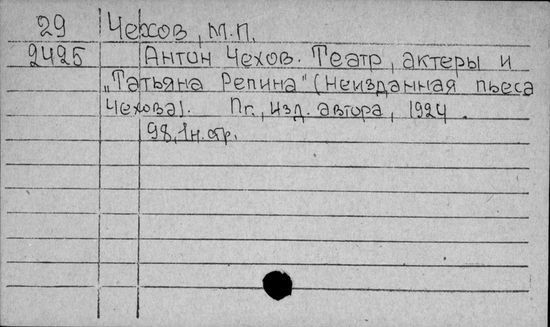 29 Чехов, М.П.
2425 Антон Чехов. Театр, актеры и
„Татьяна Репина" (неизданная пьеса
Чехова). Пг., изд. автора, 1924.
98, 1 н. стр.